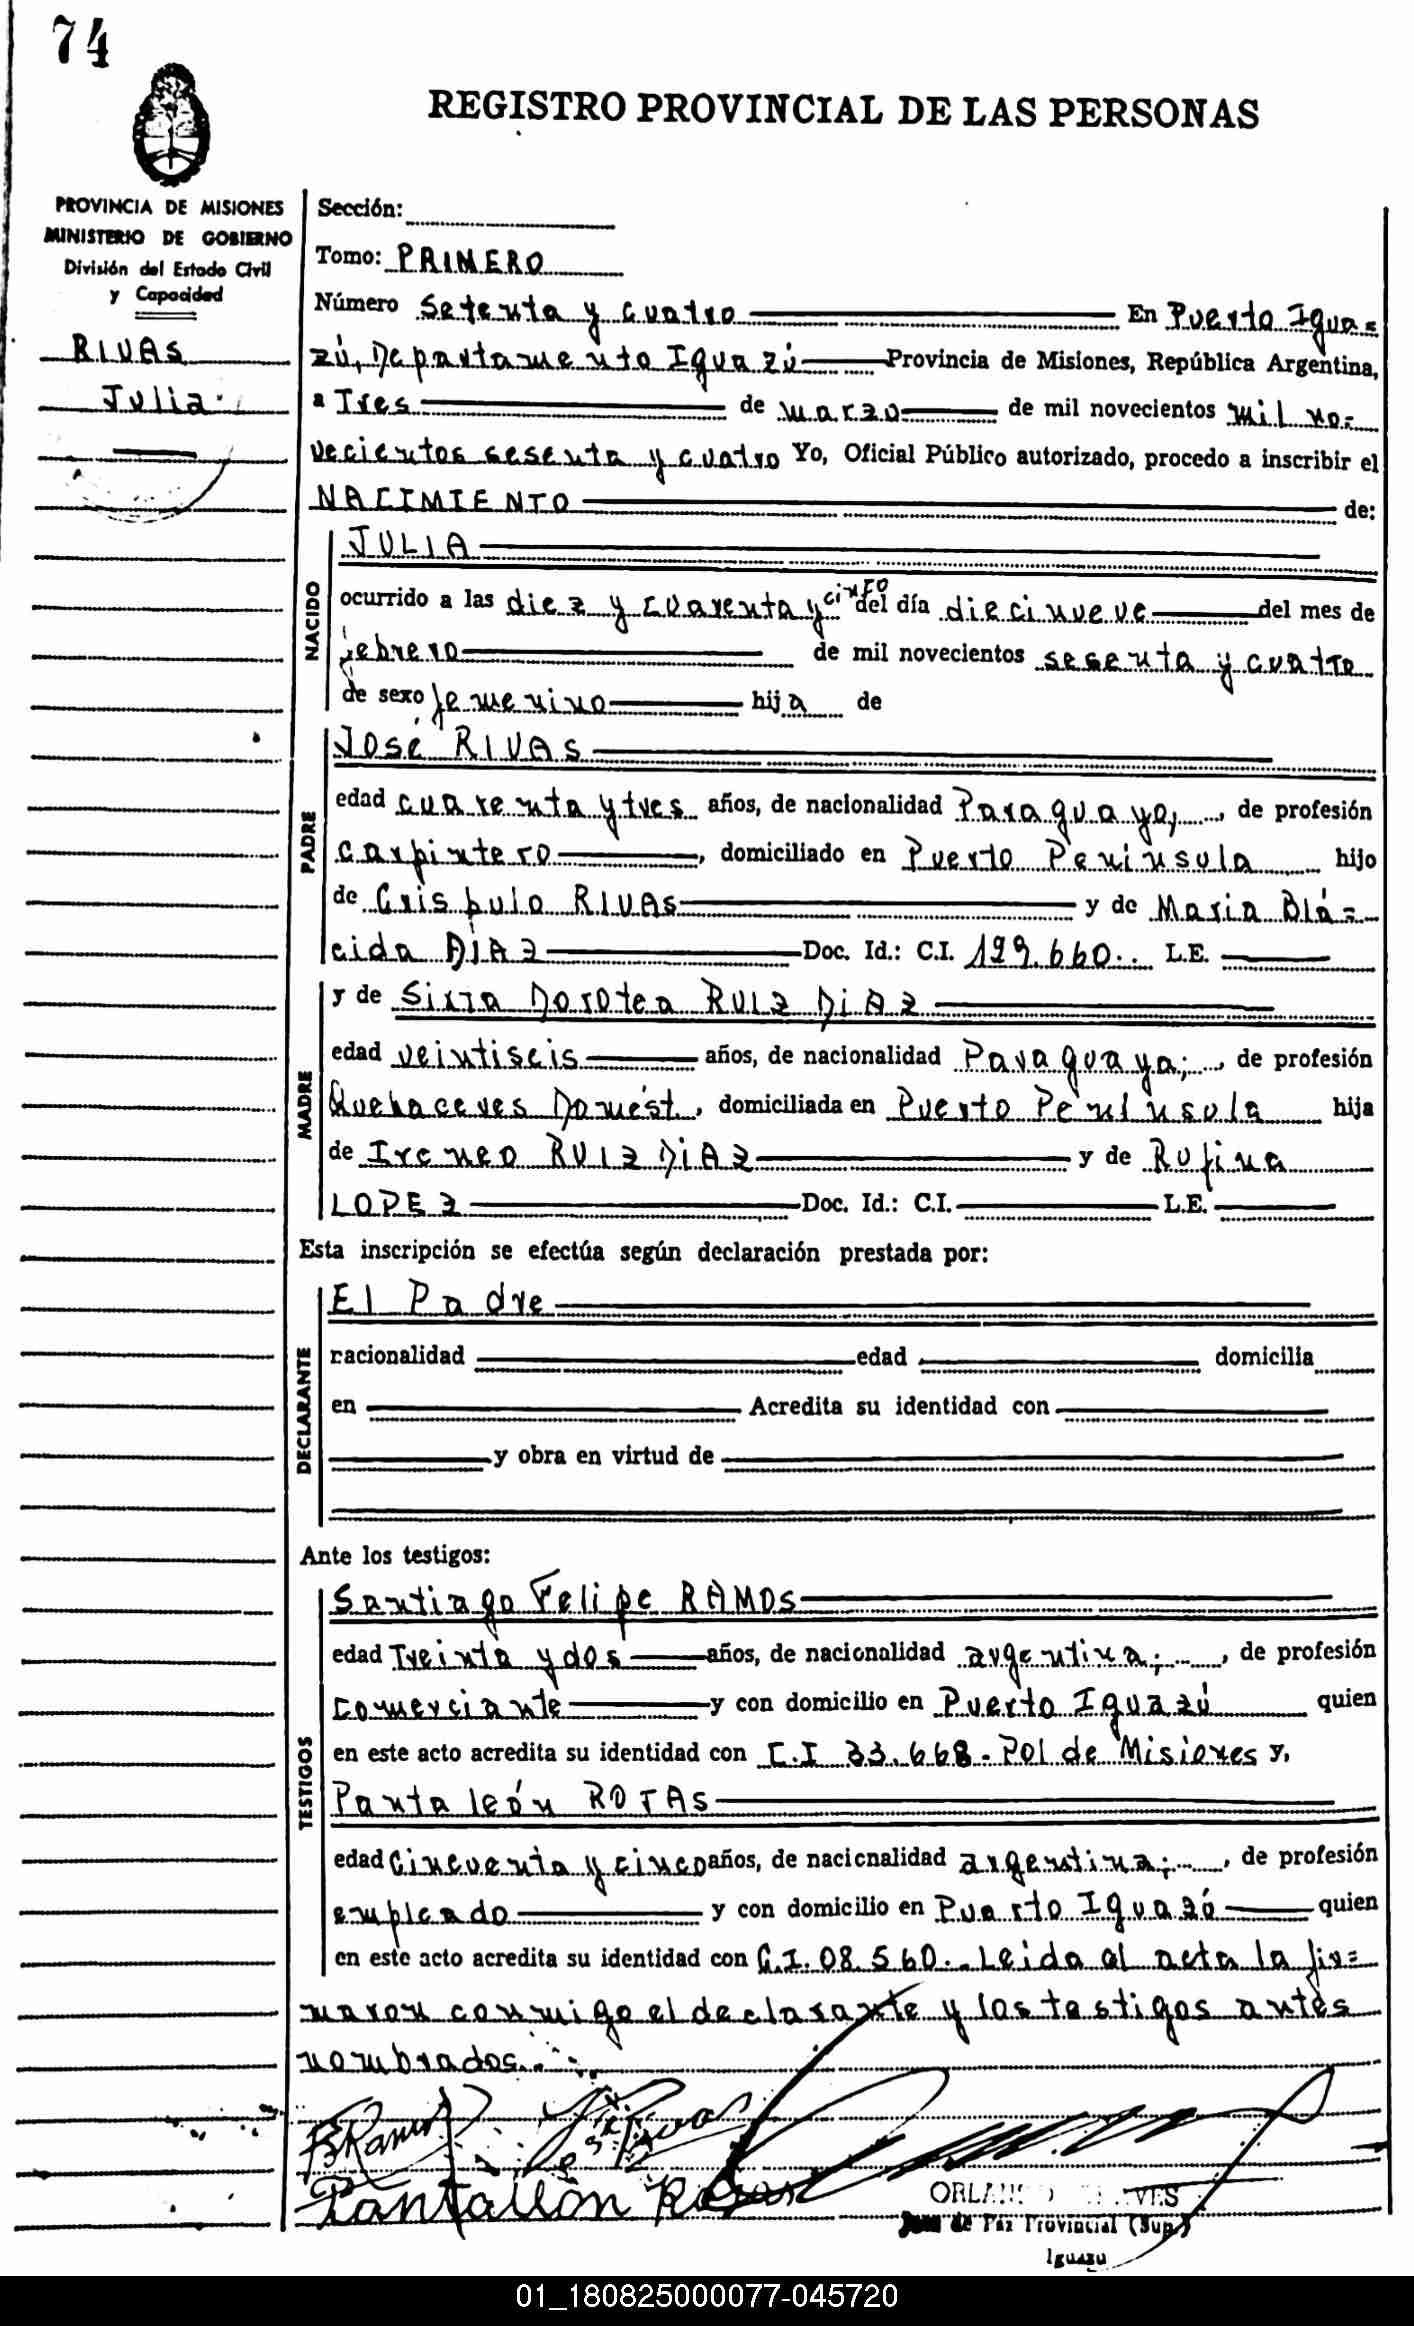 74
REGISTRO PROVINCIAL DE LAS PERSONAS
PROVINCIA DE MISIONES
MINISTERIO DE GOBIERNO
División del Estado Civil
y Capacidad
RIVAS
Julia
Sección:
Tomo: PRIMERO
Número Setenta y cuatro En Puerto Igua=
zú, Departamento Iguazú Provincia de Misiones, República Argentina,
a Tres de marzo de mil novecientos mil no-
vecientos sesenta y cuatro Yo, Oficial Público autorizado, procedo a inscribir el
NACIMIENTO de:
NACIDO
JULIA
ocurrido a las diez y cuarenta y cinco del día diecinueve del mes de
febrero de mil novecientos sesenta y cuatro
de sexo femenino hija de
PADRE
José RIVAS
edad cuarenta y tres años, de nacionalidad Paraguayo, de profesión
carpintero, domiciliado en Puerto Península hijo
de Crispulo RIVAS y de Maria Blá=
cida DIAZ Doc. Id.: C.I. 199.660.. L.E.
MADRE
y de Sixta Dorotea RUIZ DiAZ
edad veintiseis años, de nacionalidad Paraguaya; de profesión
Quehaceres Domést., domiciliada en Puerto Península hija
de Ireneo RUIZ DiAZ y de Rufina
LOPEZ Doc. Id.: C.I. L.E.
Esta inscripción se efectúa según declaración prestada por:
DECLARANTE
El Padre
nacionalidad edad domicilia
en Acredita su identidad con
y obra en virtud de
Ante los testigos:
TESTIGOS
Santiago Felipe RAMOS
edad Treinta y dos años, de nacionalidad argentina; de profesión
comerciante y con domicilio en Puerto Iguazú quien
en este acto acredita su identidad con C.I 33.668-Pol de Misiones y,
Pantaleón ROJAS
edad cincuenta y cinco años, de nacionalidad argentina; de profesión
empleado y con domicilio en Puerto Iguazú quien
en este acto acredita su identidad con C.I. 08.560.- Leida el acta la fir=
maron conmigo el declarante y los testigos antes
nombrados.
Ramos José Rivas
Pantalión Rojas
Juez de Paz Provincial (Sup.)
Iguazu
01_180825000077-045720